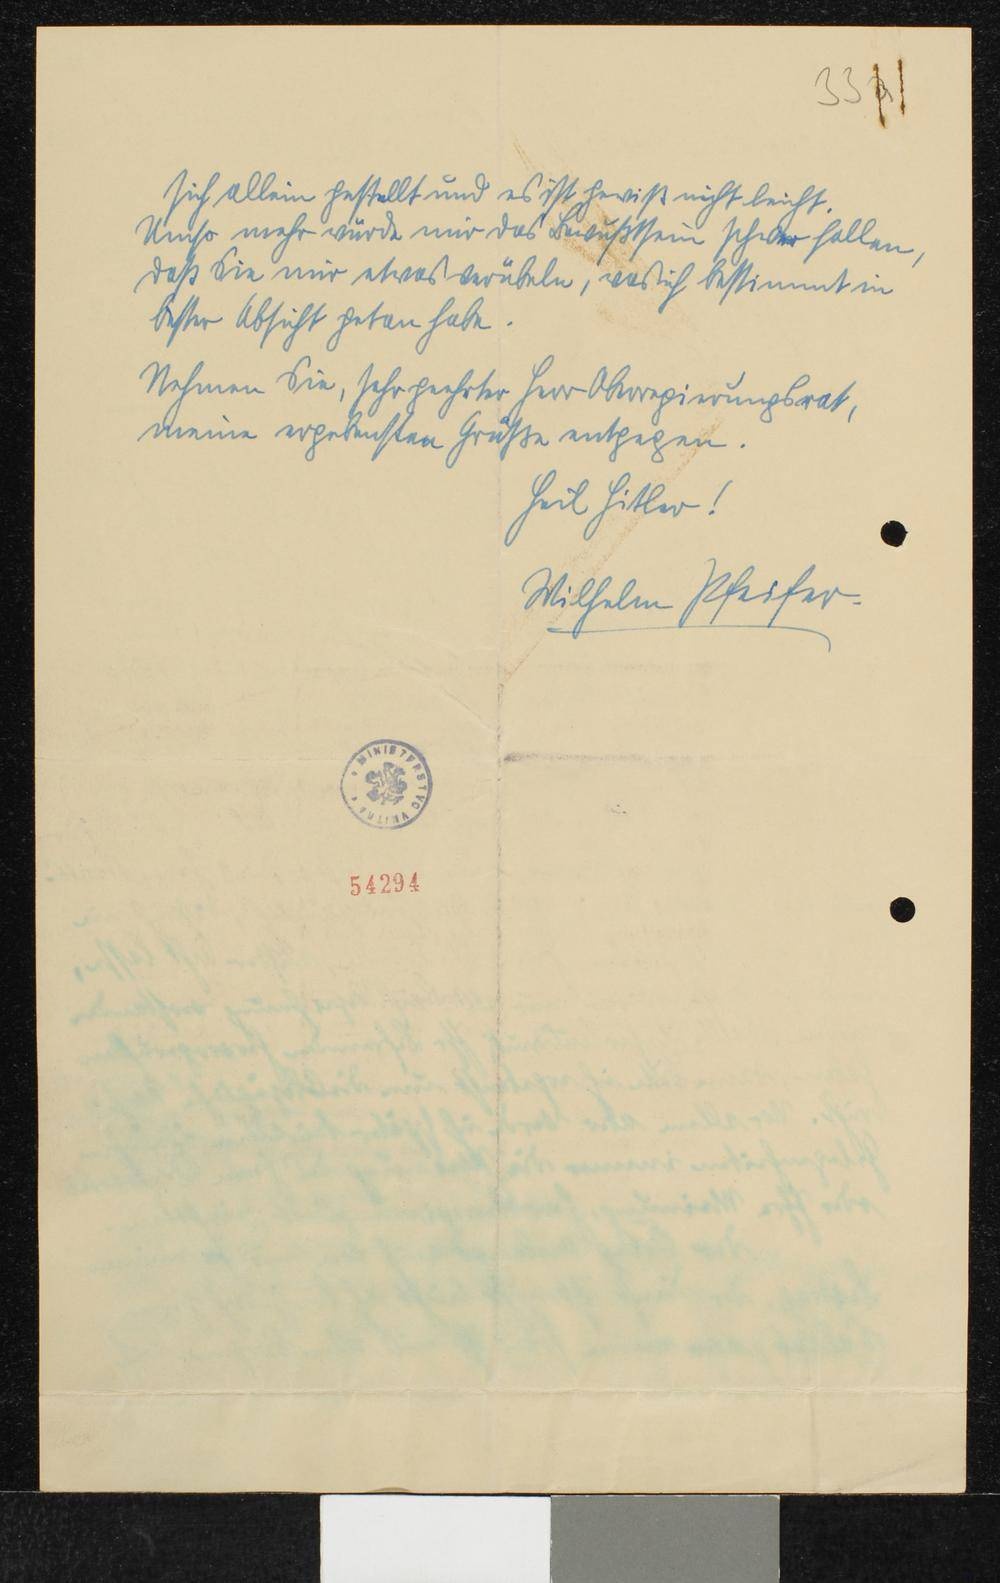 33
sich allein gestellt und es ist gewiß nicht leicht.
Umso mehr würde mir das Bewußtsein schwer fallen,
daß Sie mir etwas verübeln, was ich bestimmt in
bester Absicht getan habe.
Nehmen Sie, sehr geehrter Herr Oberregierungsrat,
meine ergebensten Grüße entgegen.
Heil Hitler!
Wilhelm Pfeifer.
MINISTERSTVO VNITRA
54294